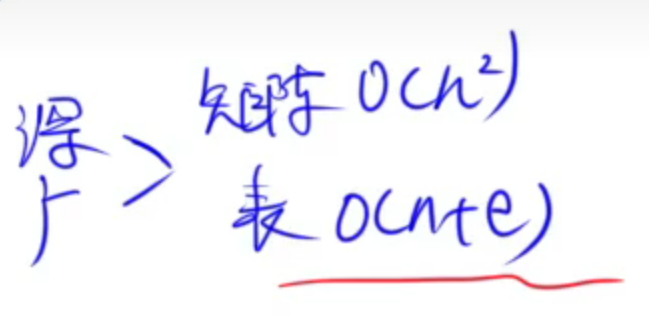 深
广
> 矩阵 O(n²)
表 O(n+e)